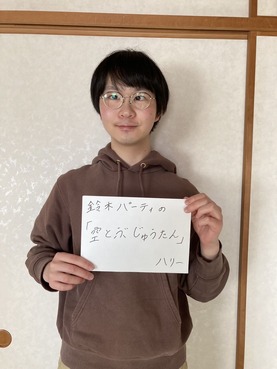 鈴木バーティの
「空とぶじゅうたん」
ハリー